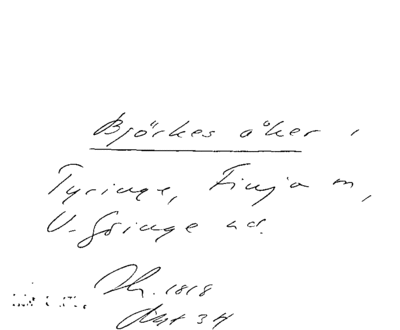 Björkes åker,
Tyringe, Finja m,
V-Göinge hd.
Lh. 1818
Akt 34